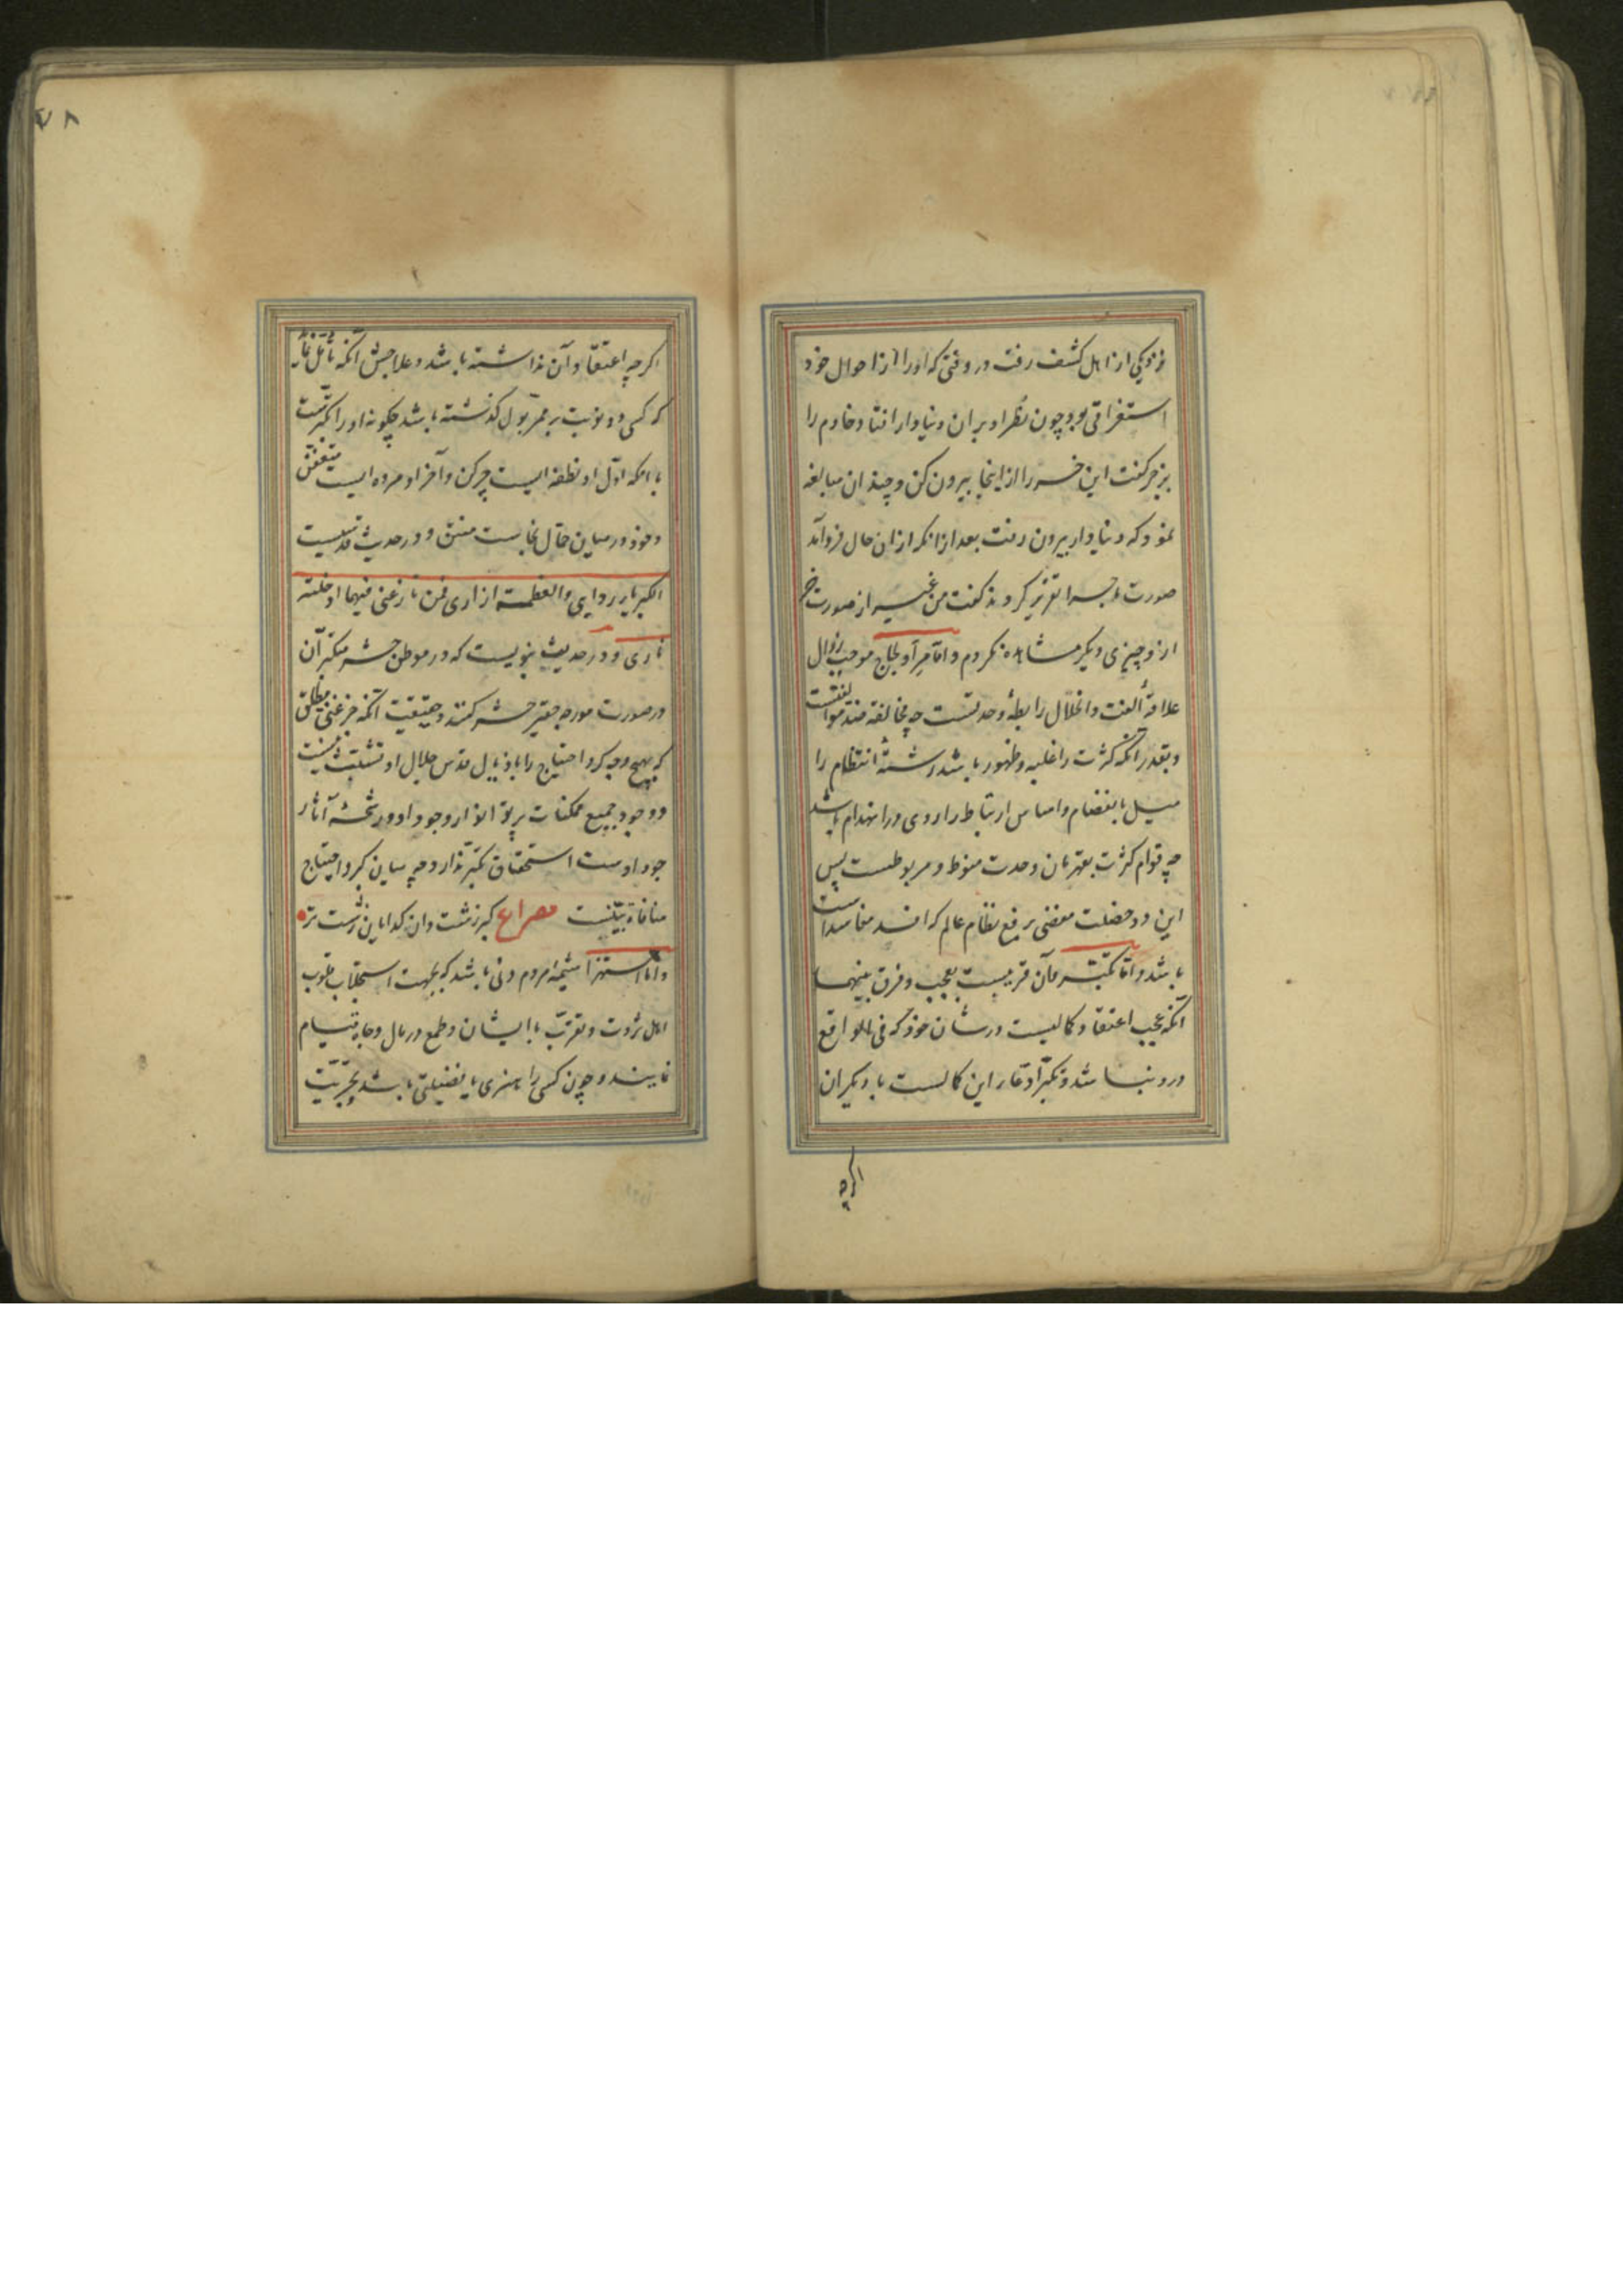 نزدیکی از اهل کشف رفت در وقتی که او را از احوال خود
استغراقی بود چون نظر او بر ان دنیادار افتاد خادم را
بزجر گفت این خر را از اینجا بیرون کن و چندان مبالغه
نمود که دنیادار بیرون رفت بعد از انکه از ان حال فرو آمد
صورت ماجرا تقریر کردند گفت من غیر از صورت خر
ازو چیزی دیگر مشاهده نکردم و امّا مِرا و لجاج موجب زوال
علاقۀ الفت و انحلال رابطۀ وحدتست چه مخالفة ضد موافقتست
و بقدر آنکه کثرت را غلبه و ظهور باشد رشتۀ انتظام را
میل بانفصام و اساس ارتباط را روی در انهدام باشد
چه قوام کثرت بقهرمان وحدت منوط و مربوطست پس
این دو خصلت مفضی برفع نظام عالم که افسد مفاسد است
باشد و امّا تکبّر و آن قریبست بعجب و فرق بینهما
آنکه عجب اعتقاد کمالیست در شان خود که فی الواقع
درو نباشد و تکبّر ادّعای این کمالست با دیکران
اکرچه
۷۸
اکرچه اعتقاد آن نداشته باشد و علاجش آنکه تأمّل نماید
که کسی دو نوبت بر ممرّ بول کذشته باشد چکونه او را تکبّر رسد
با انکه اوّل او نطفه ایست چرکن و آخر او مرده ایست متعفّن
و خود در میان حمّال نجاست منتن و در حدیث قدسیست
الکبریاء ردایی و العظمة ازاری فمن نازعنی فیهما ادخلته
ناری و در حدیث نبویست که در موطن حشر متکبّرآن
در صورت مورچه حقیر حشر کنند و حقیقت آنکه جز غنی مطلق
که بهیچ وجه کرد احتیاج را باذیال قدس جلال او تشبّث نیست
و وجود جمیع ممکنات پرتو انوار وجود او و رشحۀ آثار
جود اوست استحقاق تکبّر ندارد چه میان کبر و احتیاج
منافاة بیّنست مصراع کبر زشت وان کدایان زشت تر
و امّا استهزا شیمۀ مردم دنی باشد که بجهت استجلاب قلوب
اهل ثروت و تقرّب با ایشان و طمع در مال و جاه قیام
نمایند و چون کسی را هنری یا فضیلتی باشد و بحرّیّت